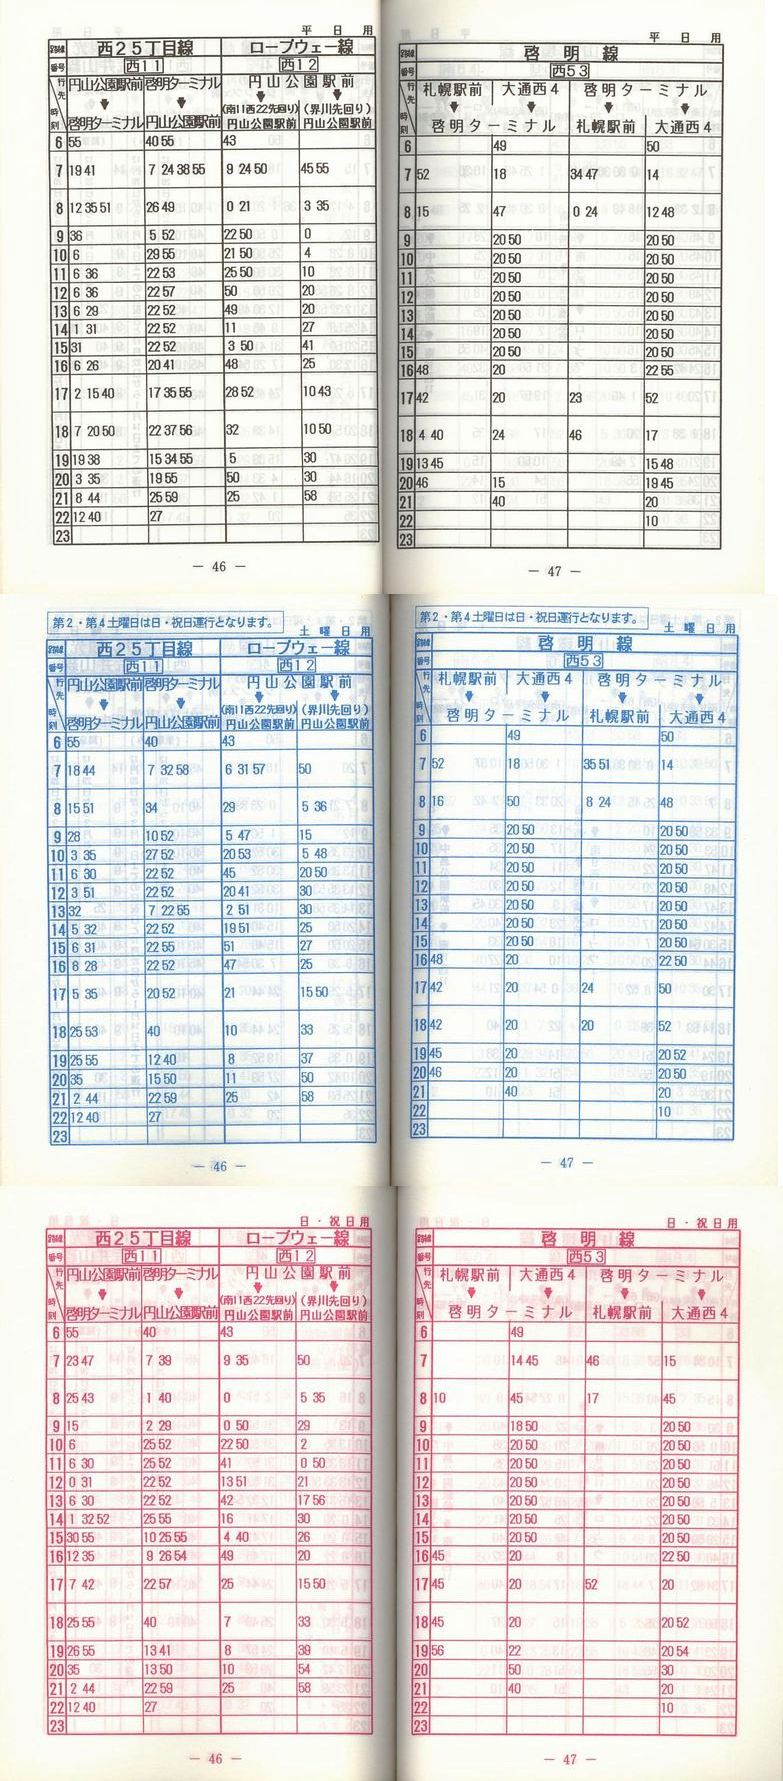 平日用
路線 西25丁目線 ロープウェー線
番号 西11 西12
行先 円山公園駅前 啓明ターミナル 円山公園駅前
時刻 啓明ターミナル 円山公園駅前 (南11西22先回り)円山公園駅前 (界川先回り)円山公園駅前
6 55 40 55 43
7 19 41 7 24 38 55 9 24 50 45 55
8 12 35 51 26 49 0 21 3 35
9 36 5 52 22 50 0
10 6 29 55 21 50 4
11 6 36 22 53 25 50 10
12 6 36 22 57 50 20
13 6 29 22 52 49 20
14 1 31 22 52 11 27
15 31 22 52 3 50 41
16 6 26 20 41 48 25
17 2 15 40 17 35 55 28 52 10 43
18 7 20 50 22 37 56 32 10 50
19 19 38 15 34 55 5 30
20 3 35 19 55 50 30
21 8 44 25 59 25 58
22 12 40 27
23
— 46 —
平日用
路線 啓明線
番号 西53
行先 札幌駅前 大通西4 啓明ターミナル
時刻 啓明ターミナル 札幌駅前 大通西4
6 49 50
7 52 18 34 47 14
8 15 47 0 24 12 48
9 20 50 20 50
10 20 50 20 50
11 20 50 20 50
12 20 50 20 50
13 20 50 20 50
14 20 50 20 50
15 20 50 20 50
16 48 20 22 55
17 42 20 23 52
18 4 40 24 46 17
19 13 45 15 48
20 46 15 19 45
21 40 20
22 10
23
— 47 —
第2・第4土曜日は日・祝日運行となります。
土曜日用
路線 西25丁目線 ロープウェー線
番号 西11 西12
行先 円山公園駅前 啓明ターミナル 円山公園駅前
時刻 啓明ターミナル 円山公園駅前 (南11西22先回り)円山公園駅前 (界川先回り)円山公園駅前
6 55 40 43
7 18 44 7 32 58 6 31 57 50
8 15 51 34 29 5 36
9 28 10 52 5 47 15
10 3 35 27 52 20 53 5 48
11 6 30 22 52 45 20 50
12 3 51 22 52 20 41 30
13 32 7 22 55 2 51 30
14 5 32 22 52 19 51 25
15 6 31 22 55 51 27
16 8 28 22 52 47 25
17 5 35 20 52 21 15 50
18 25 53 40 10 33
19 25 55 12 40 8 37
20 35 15 50 11 50
21 2 44 22 59 25 58
22 12 40 27
23
— 46 —
第2・第4土曜日は日・祝日運行となります。
土曜日用
路線 啓明線
番号 西53
行先 札幌駅前 大通西4 啓明ターミナル
時刻 啓明ターミナル 札幌駅前 大通西4
6 49 50
7 52 18 35 51 14
8 16 50 8 24 48
9 20 50 20 50
10 20 50 20 50
11 20 50 20 50
12 20 50 20 50
13 20 50 20 50
14 20 50 20 50
15 20 50 20 50
16 48 20 22 50
17 42 20 24 50
18 42 20 20 52
19 45 20 20 52
20 46 20 20 50
21 40 20
22 10
23
— 47 —
日・祝日用
路線 西25丁目線 ロープウェー線
番号 西11 西12
行先 円山公園駅前 啓明ターミナル 円山公園駅前
時刻 啓明ターミナル 円山公園駅前 (南11西22先回り)円山公園駅前 (界川先回り)円山公園駅前
6 55 40 43
7 23 47 7 39 9 35 50
8 25 43 1 40 0 5 35
9 15 2 29 0 50 29
10 6 25 52 22 50 2
11 6 30 25 52 41 0 50
12 0 31 22 52 13 51 21
13 6 30 22 52 42 17 56
14 1 32 52 25 55 16 30
15 30 55 10 25 55 4 40 26
16 12 35 9 26 54 49 20
17 7 42 22 57 25 15 50
18 25 55 40 7 33
19 26 55 13 41 8 39
20 35 13 50 10 54
21 2 44 22 59 25 58
22 12 40 27
23
— 46 —
日・祝日用
路線 啓明線
番号 西53
行先 札幌駅前 大通西4 啓明ターミナル
時刻 啓明ターミナル 札幌駅前 大通西4
6 49
7 14 45 46 15
8 10 45 17 45
9 18 50 20 50
10 20 50 20 50
11 20 50 20 50
12 20 50 20 50
13 20 50 20 50
14 20 50 20 50
15 20 50 20 50
16 45 20 22 50
17 45 20 52 20
18 45 20 20 52
19 56 22 20 54
20 50 30
21 40 20
22 10
23
— 47 —